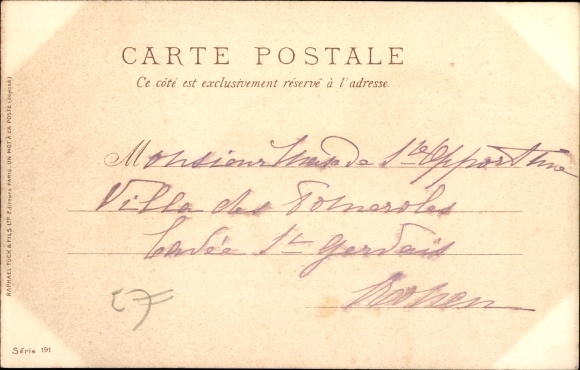 CARTE POSTALE
Ce côté est exclusivement réservé à l'adresse.
Monsieur de Ste Opportune
Villa des
St Gervais
Rouen
RAPHAEL TUCK & FILS, LTD EDITEURS PARIS. UN MOT A LA POSTE (Déposé)
Série 191